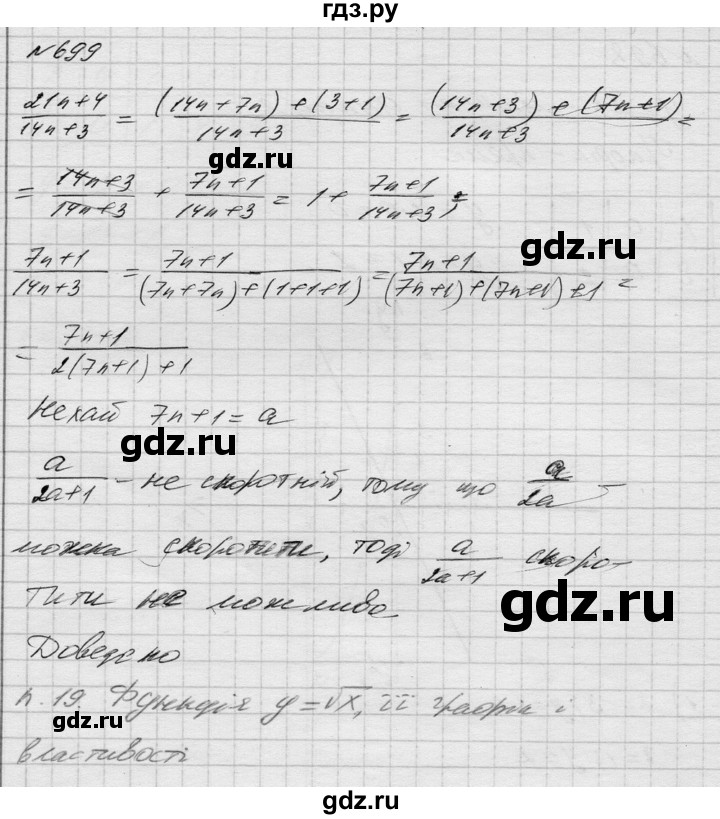 гдз.ру
№699
21n+4/14n+3 = (14n+7n)+(3+1)/14n+3 = (14n+3)+(7n+1)/14n+3 =
gdz.ru
= 14n+3/14n+3 + 7n+1/14n+3 = 1+ 7n+1/14n+3;
gdz.ru
7n+1/14n+3 = 7n+1/(7n+7n)+(1+1+1) = 7n+1/(7n+1)+(7n+1)+1 =
= 7n+1/2(7n+1)+1
Нехай 7n+1=a
gdz.ru
a/2a+1 - не скоротній, тому що a/2a -
можна скоротити, тоді a/2a+1 скоро-
gdz.ru
тити не можливо
Доведено
п.19 Функція y=√x, її графік і
gdz.ru
властивості
gdz.ru
gdz.ru